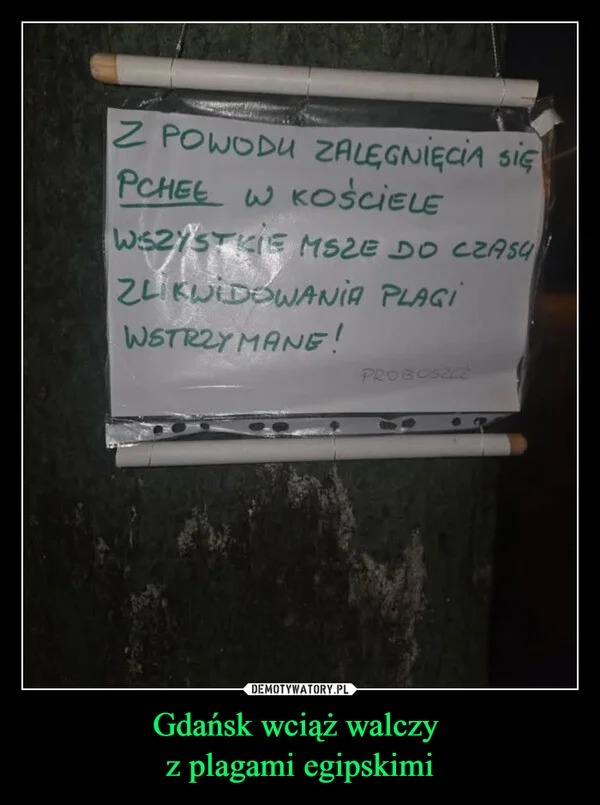 Z POWODU ZALĘGNIĘCIA SIĘ
PCHEŁ W KOŚCIELE
WSZYSTKIE MSZE DO CZASU
ZLIKWIDOWANIA PLAGI
WSTRZYMANE!
PROBOSZCZ
DEMOTYWATORY.PL
Gdańsk wciąż walczy
z plagami egipskimi